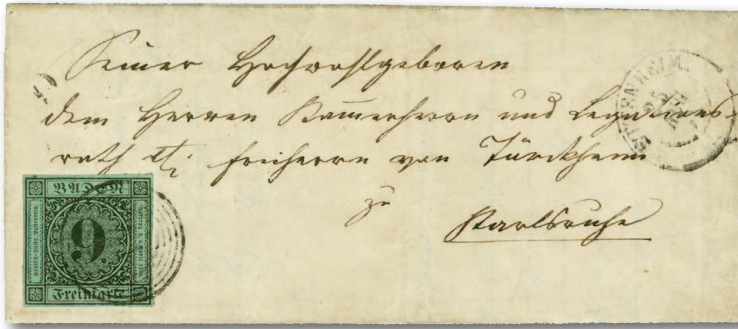 Seiner Hochwohlgeboren
dem Herren Kammerherrn und Legations-
rath Freiherrn von Türckheim
zu
Karlsruhe
BADEN
9.
Freimarke
ETTENHEIM
25